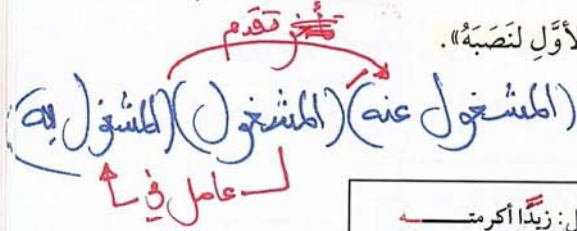 لأوَّلِ لنَصَبَهُ».
تقدم
(المشغول عنه) (المشغول) (المشغول به)
عامل في
ل: زيدًا أكرمتـــــه